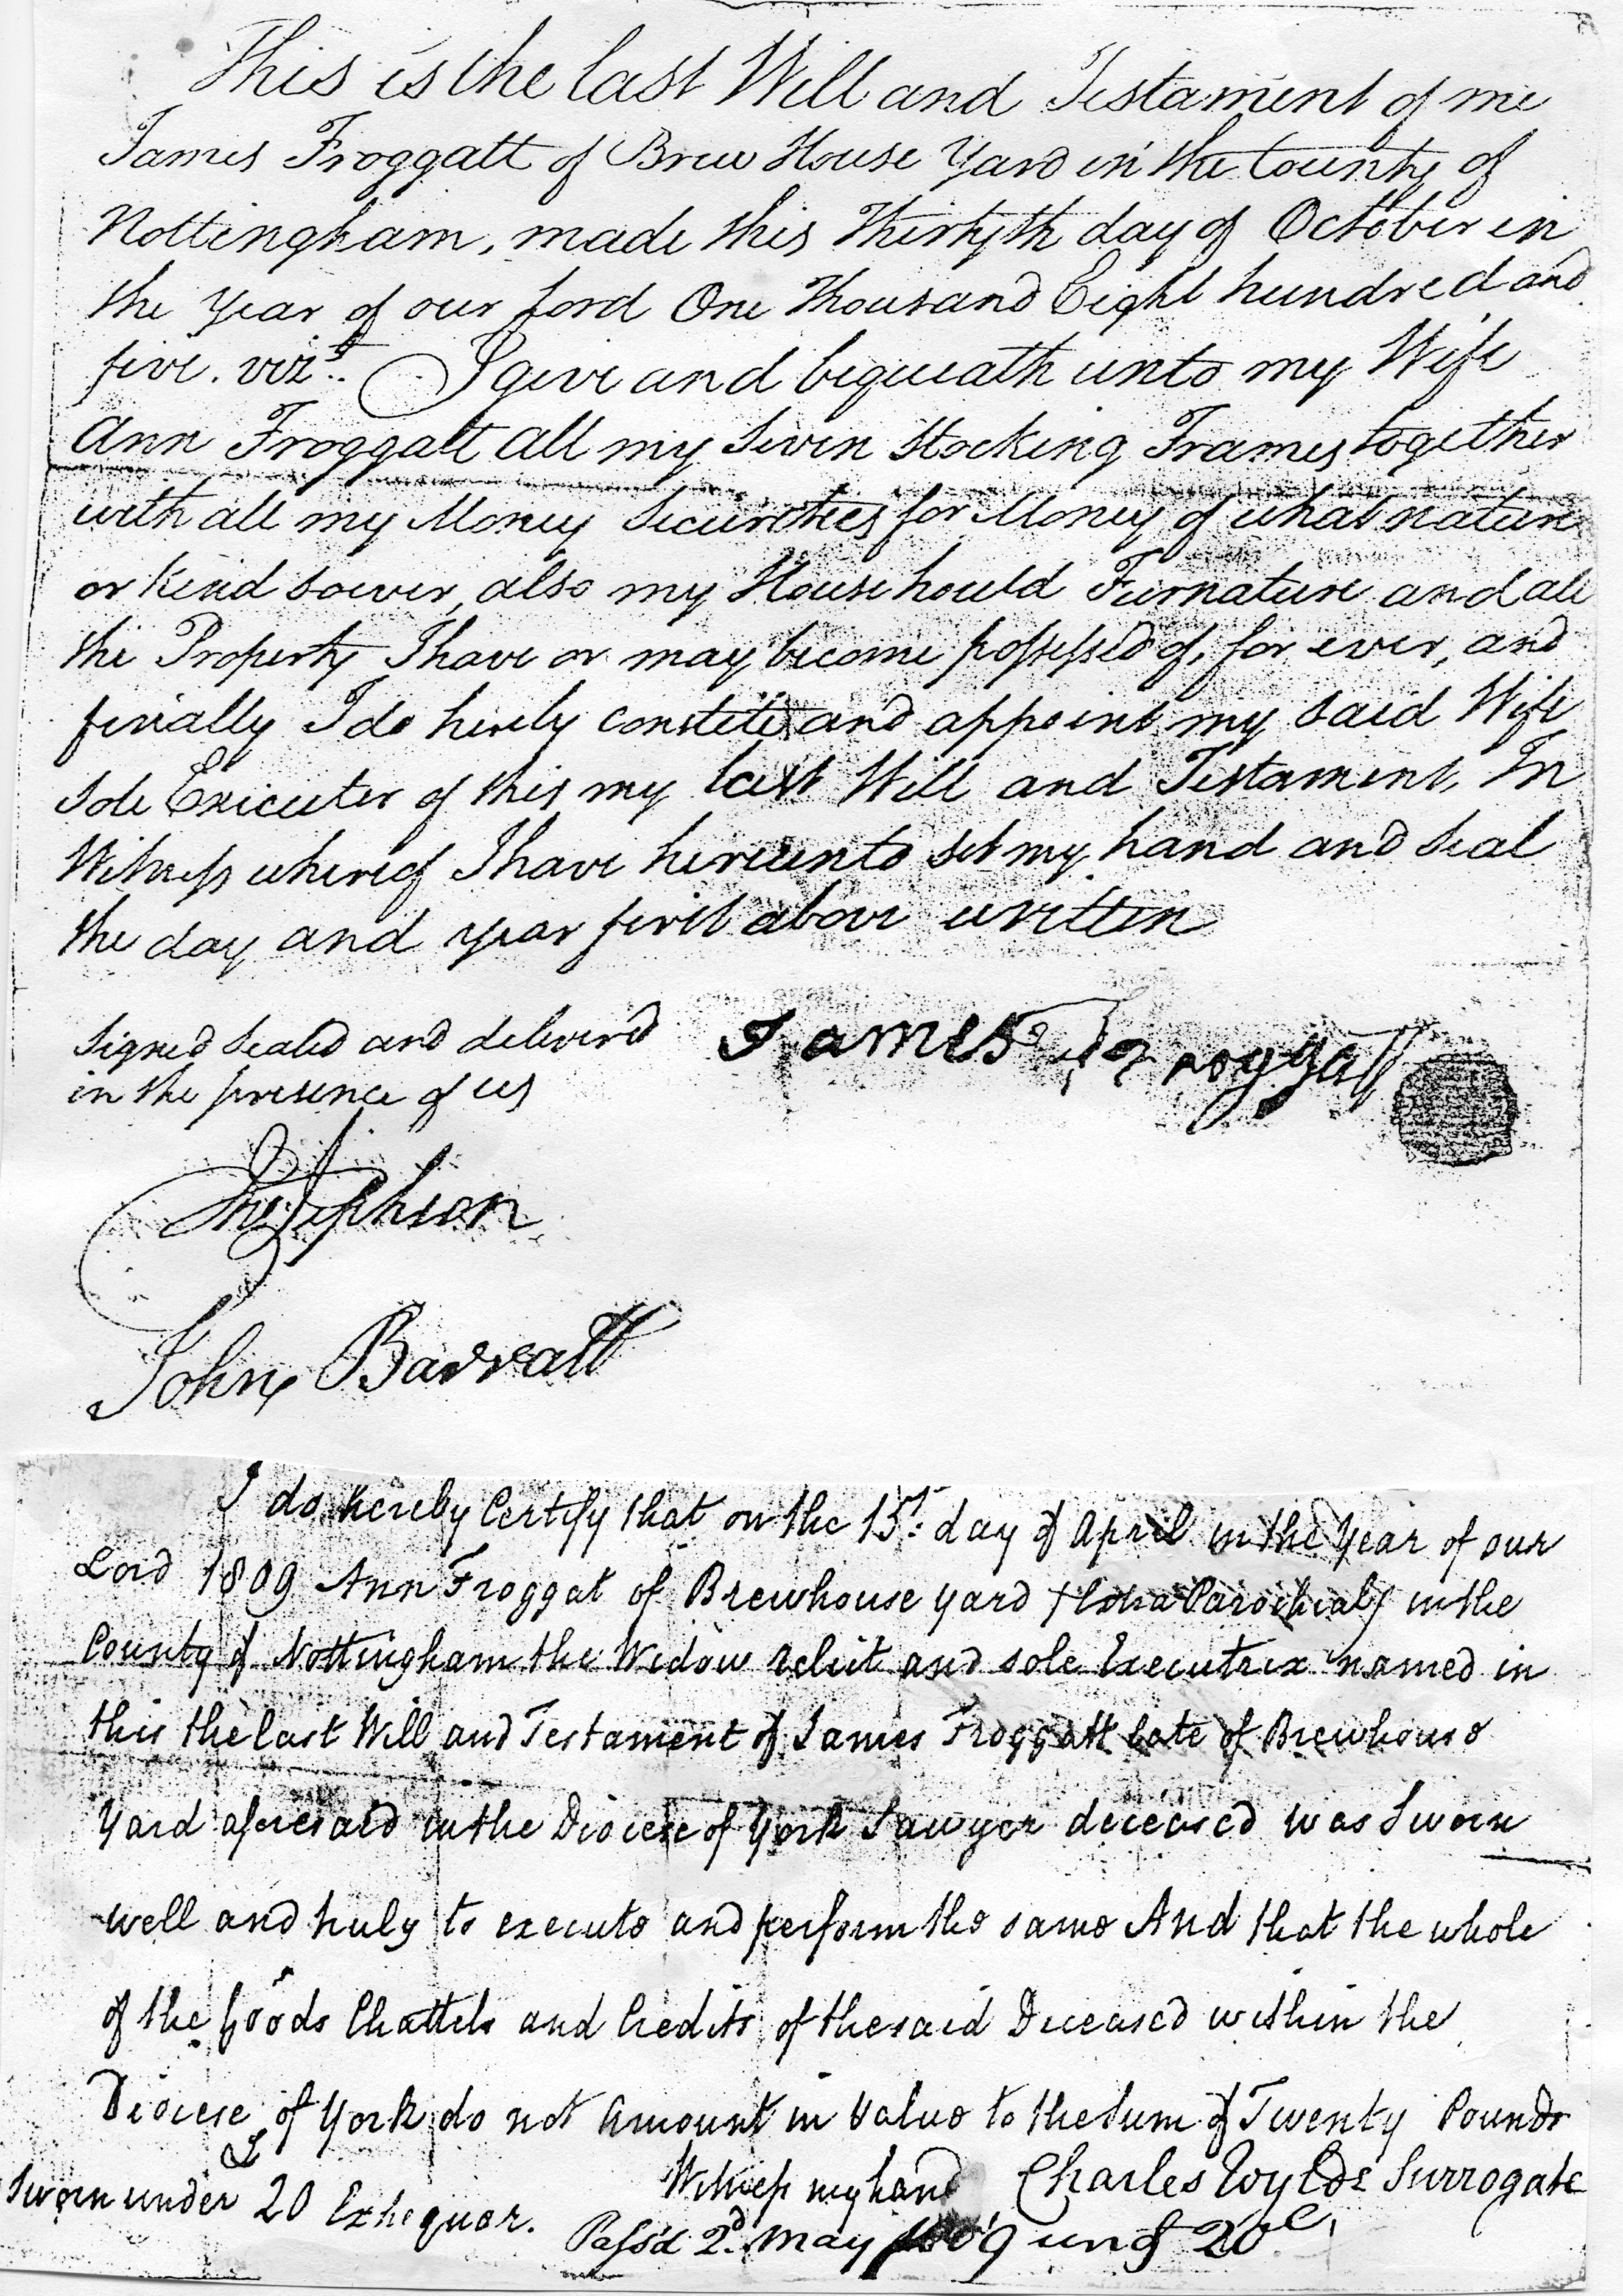 This is the last Will and Testament of me
James Froggatt of Brew House Yard in the County of
Nottingham, made this Thirtyth day of October in
the Year of our Lord One Thousand Eight hundred and
five. vizt. I give and bequeath unto my Wife
Ann Froggatt all my Seven Stocking Frames together
with all my Money Securities for Money of what nature
or kind soever, also my Househould Furnature and all
the Property I have or may become possessed of, for ever, and
finially I do herely and appoint my said Wife
Sole Executer of this my last Will and Testament, In
Witness whereof I have hereunto set my hand and Seal
the day and year first above written
Signed Sealed and deliverd James Froggatt
in the presence of us
Jephson
John Barratt
I do hereby Certify that on the 15t. day of April in the Year of our
Lord 1809 Ann Froggat of Brewhouse yard (Extra Parochial) in the
County of Nottingham the Widow relict and sole Executrix named in
this the last Will and Testament of James Froggatt late of Brewhouse
Yard aforesaid in the Diocese of York Sawyer deceased was Sworn
well and truly to execute and perform the same And that the whole
of the Goods Chattels and Credits of the said Deceased within the
Diocese of York do not amount in value to the Sum of Twenty Pounds
Witness my hand Charles Wylde Surrogate
Sworn under £ 20 Exhequer.
Pass'd 2d. May 1809 und 20£